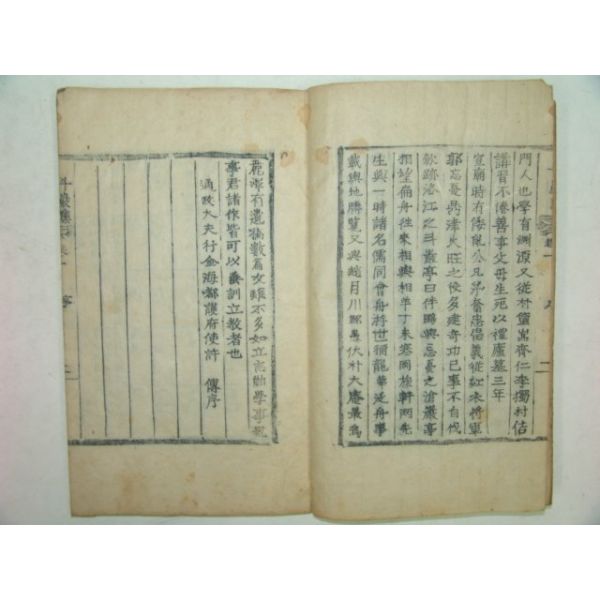 門人也學有淵源又從朴篁嵒齊仁李獨村佶
講習不倦善事父母生死以禮廬墓三年
宣廟時有倭亂公兄弟奮忠倡義從紅衣將軍
郭忘憂鼎津火旺之役多建奇功已事不自伐
歛跡洛江之斗巖亭曰伴鷗與忘憂之滄巖亭
相望扁舟往來相與相羊丁未寒岡旅軒兩先
生與一時諸名儒同會舟
龍華泛舟事
載輿地勝覽又與趙月川
伏朴大庵最爲
有遺稿數篇文雖不多如立言勸學事親
事君諸作皆可以垂訓立敎者也
通政大夫行金海都護府使許 傳序